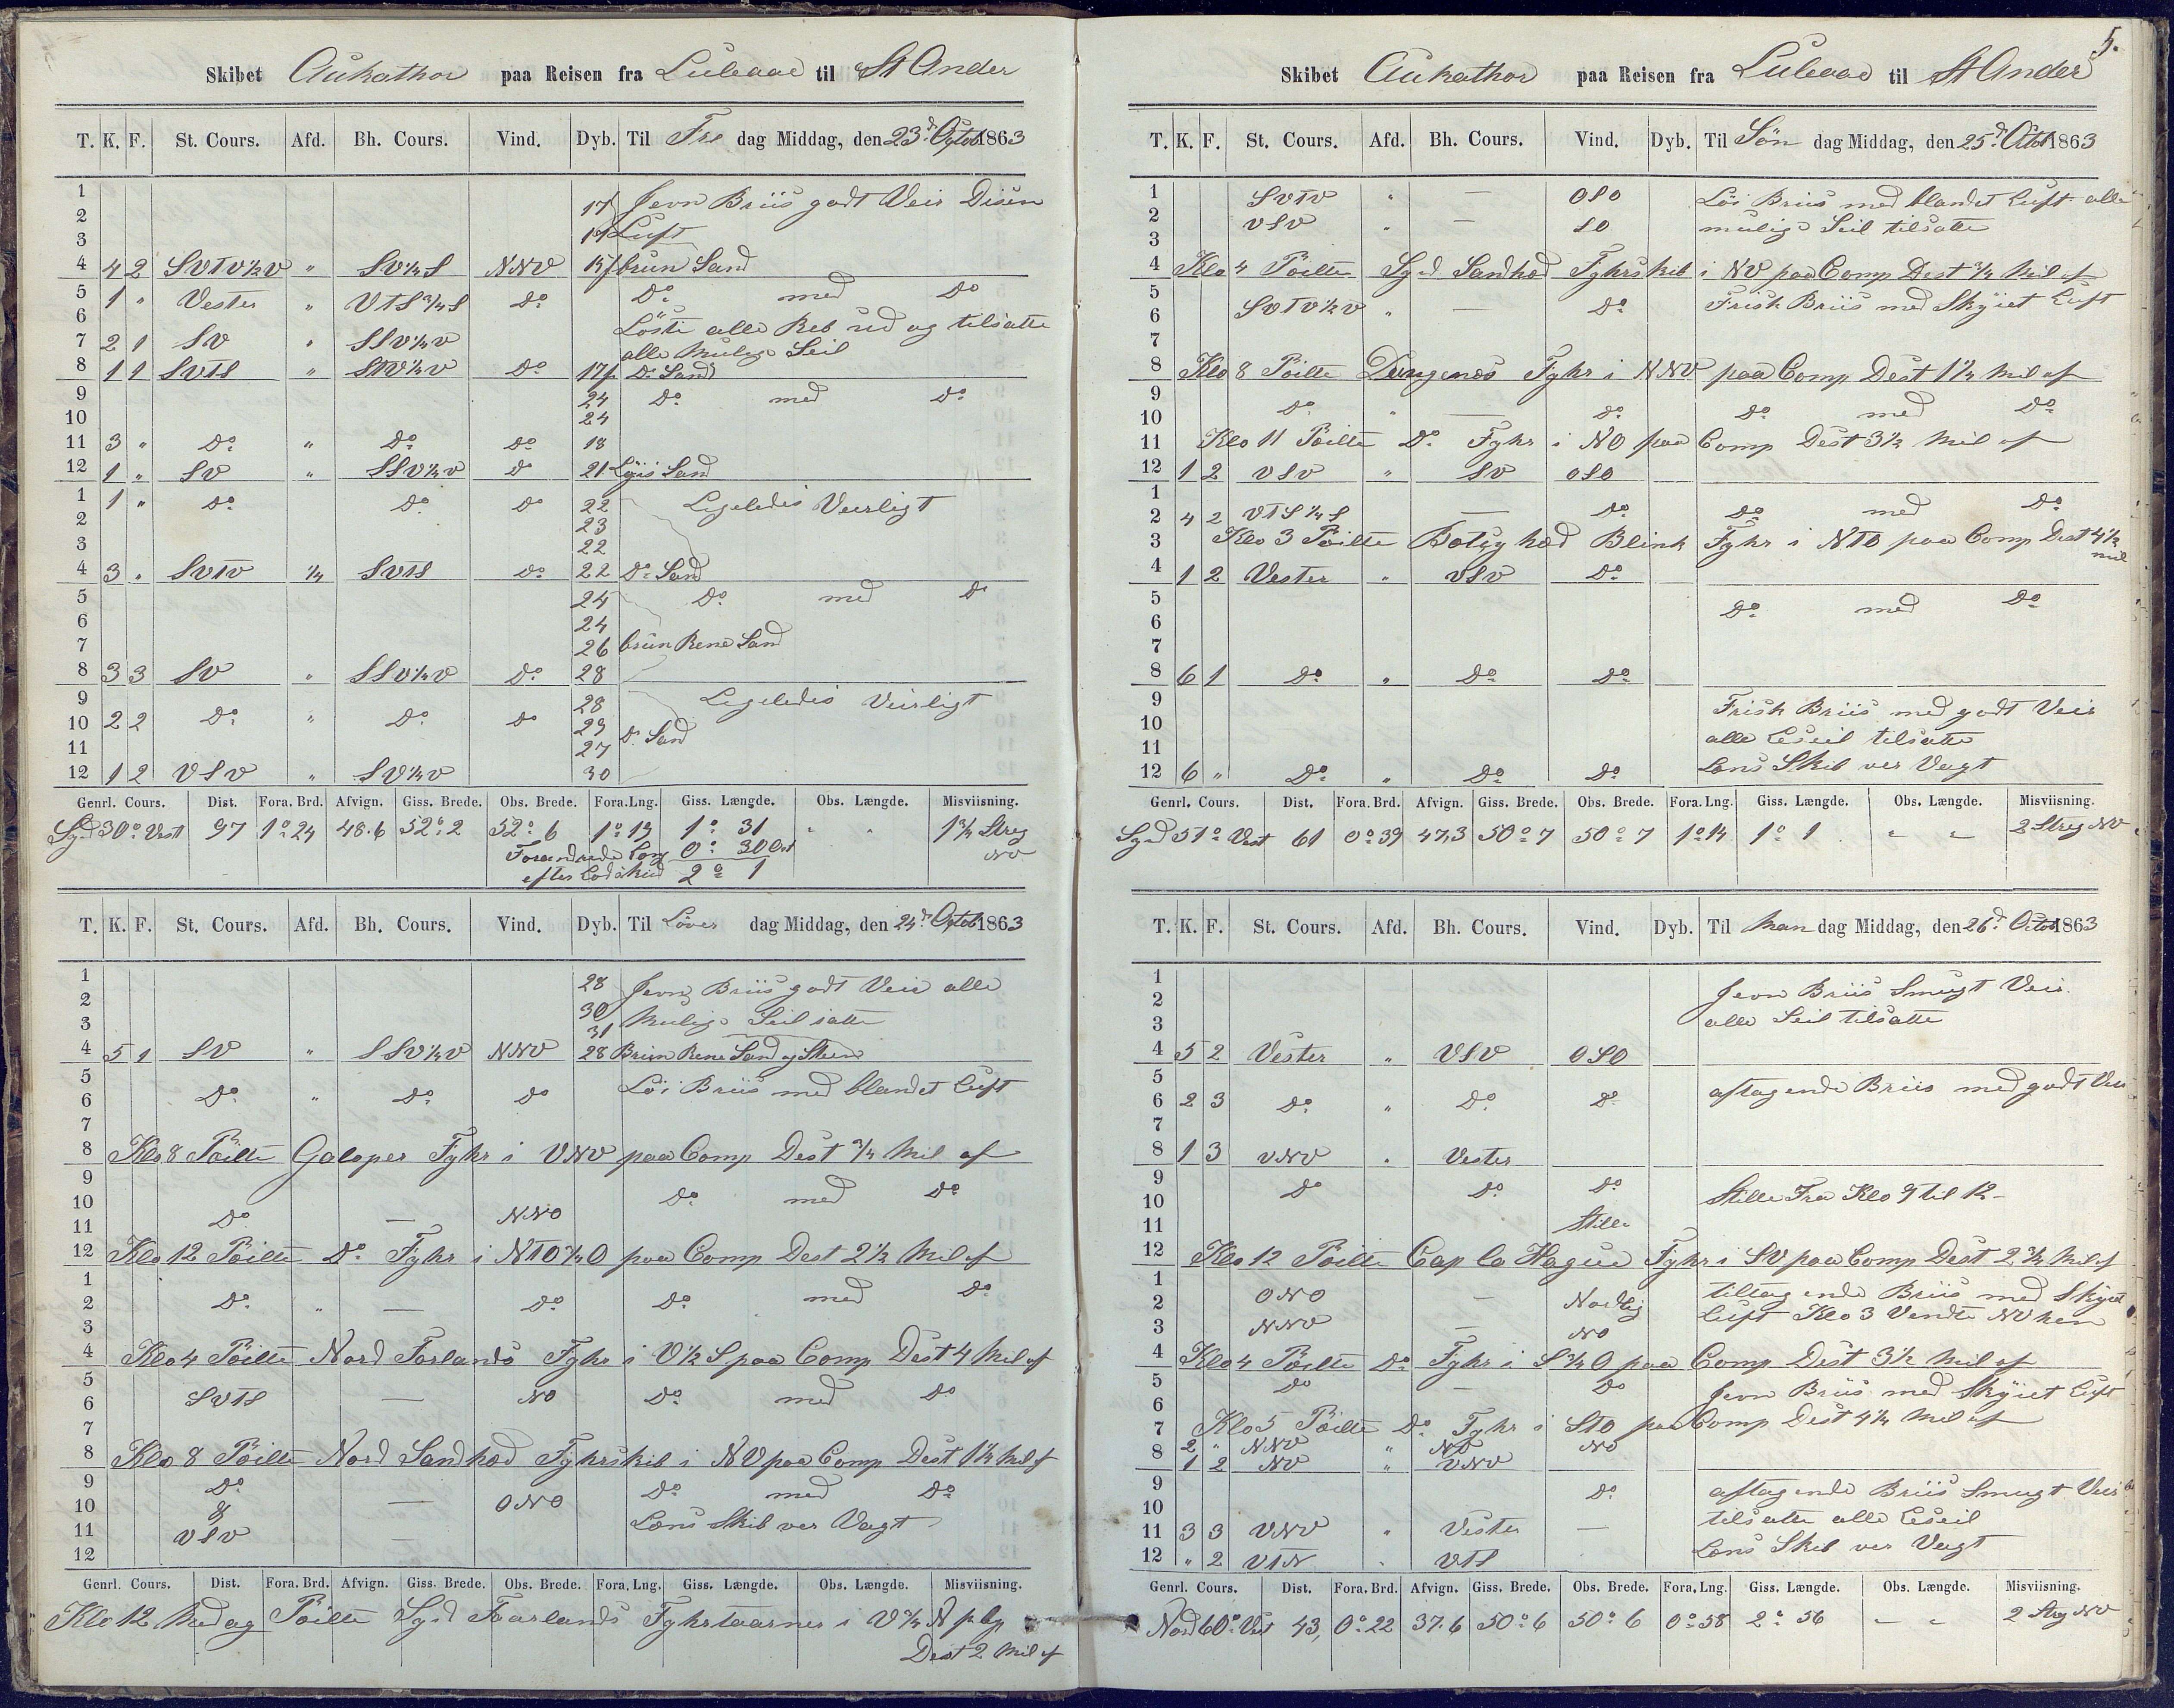 Skibet Aukathor paa Reisen fra Luleaae til St Ander
T. K. F. St. Cours. Afd. Bh. Cours. Vind. Dyb. Til Fre dag Middag, den 23d. Octob 1863
1 17 Jevn Briis godt Veir Disen
2
3 19 Luft
4 4 2 SVTV½V " SV¼S NNV 15/ brun Sand
5 1 " Vester " VTS¾S Do Do med Do
6 Löste alle Reb ud og tilsatte
7 2 1 SV " SSV¼V alle Mulige Seil
8 1 1 SVTS " STV¼V Do 17/ Do Sand
9 24 Do med Do
10 24
11 3 " Do " Do Do 18
12 1 " SV " SSV¼V Do 21 Lyis Sand
1 1 " Do Do Do 22 Ligeledes Veirligt
2 23
3 22
4 3 " SVTV ¼ SVTS Do 22 Do Sand
5 24 Do med Do
6 24
7 26 brun Rene Sand
8 3 3 SV " SSV¼V Do 28
9 28 Ligeledes Veirligt
10 2 2 Do " Do Do 29 Do Sand
11 27
12 1 2 VSV " SV¼V 30
Genrl. Cours. Dist. Fora. Brd. Afvign. Giss. Brede. Obs. Brede. Fora. Lng. Giss. Længde. Obs. Længde. Misviisning.
Syd 30° Vest 97 1° 24 48.6 52° 2 52° 6 1° 19 1° 31 " " 1¾ Streg
Forandrede Long 0° 30 Ost NV
efter Lodskud 2° 1
T. K. F. St. Cours. Afd. Bh. Cours. Vind. Dyb. Til Löver dag Middag, den 24d. Octob 1863
1 28 Jevn Briis godt Veir alle
2 30 Mulige Seil satte
3 31
4 5 1 SV " SSV¼V NNV 28 Brun Rene Sand og Steen
5 Löi Briis med blandet Luft
6 Do " Do Do
7
8 Klo 8 Pöilte Galoper Fyhr i VNV paa Comp Dest ¾ Mil af
9
10 Do — NNO Do med Do
11
12 Klo 12 Pöilte Do Fyhr i NTO¾O paa Comp Dest 2½ Mil af
1
2 Do " — Do Do med Do
3
4 Klo 4 Pöilte Nord Forlands Fyhr i V½S paa Comp Dest 4 Mil af
5
6 SVTS — NO Do med Do
7
8 Klo 8 Pöilte Nord Sandhod Fyhrskib i NV paa Comp Dest 1½ Mil af
9 Do
10 & — ONO Do med Do
11 VSV — Lens Skib ver Vagt
12
Genrl. Cours. Dist. Fora. Brd. Afvign. Giss. Brede. Obs. Brede. Fora. Lng. Giss. Længde. Obs. Længde. Misviisning.
Klo 12 Medag Pöilte Syd Foarlands Fyhrtaarner i V¾N
Dest 2 Mil af
5.
Skibet Aukathor paa Reisen fra Luleaae til St Ander
T. K. F. St. Cours. Afd. Bh. Cours. Vind. Dyb. Til Sön dag Middag, den 25d. Octob 1863
1 SVTV " — OSO Löi Briis med blandet Luft alle
2 VSV " — SO mulige Seil tilsatte
3
4 Klo 4 Pöilte Syd Sandhod Fyhrskib i NV paa Comp Dest ¾ Mil af
5 Frisk Briis med Skyiet Luft
6 SVTV½V " — Do
7
8 Klo 8 Pöilte Dungenes Fyhr i NNV paa Comp Dest 1¼ Mil af
9
10 Do " — Do Do med Do
11 Klo 11 Pöilte Do Fyhr i NO paa Comp Dest 3½ Mil af
12 1 2 VSV " SV OSO
1
2 4 2 VTS¼S — Do Do med Do
3 Klo 3 Pöilte Botsyhod Blink Fyhr i NTO paa Comp Dest 4½ mil
4 1 2 Vester " VSV Do
5 Do med Do
6
7
8 6 1 Do " Do Do
9 Frisk Briis med godt Veir
10 alle Leseil tilsatte
11
12 6 " Do " Do Do Lens Skib ver Vagt
Genrl. Cours. Dist. Fora. Brd. Afvign. Giss. Brede. Obs. Brede. Fora. Lng. Giss. Længde. Obs. Længde. Misviisning.
Syd 51° Vest 61 0° 39 47,3 50° 7 50° 7 1° 14 1° 1 " " 2 Streg NV
T. K. F. St. Cours. Afd. Bh. Cours. Vind. Dyb. Til Man dag Middag, den 26d. Octob 1863
1 Jevn Briis Smugt Veir
2 alle Seil tilsatte
3
4 5 2 Vester " VSV OSO
5 aftagende Briis med godt Veir
6 2 3 Do " Do Do
7
8 1 3 VNV " Vester
9 Do Do Do
10 Stille Fra Klo 9 til 12
11 Stille
12 Klo 12 Pöilte Cap la Hague Fyhr i SV paa Comp Dest 2¾ Mil af
1 tiltagende Briis med Skyiet
2 ONO — Nordlig Luft Klo 3 Vendte NV hen
3 NNV — NO
4 Klo 4 Pöilte Do Fyhr i S¾O paa Comp Dest 3½ Mil af
5 Do — Do Jevn Briis med Skyiet Luft
6
7 Klo 5 Pöilte Do Fyhr i STO paa Comp Dest 4¼ Mil af
8 2 " NNV " NV NO
1 2 NV " VNV
9 Do aftagende Briis Smugt Veir
10 tilsatte alle Leseil
11 3 3 VNV " Vester —
12 " 2 VTN " VTS Lens Skib ver Vagt
Genrl. Cours. Dist. Fora. Brd. Afvign. Giss. Brede. Obs. Brede. Fora. Lng. Giss. Længde. Obs. Længde. Misviisning.
Nord 60° Vest 43, 0° 22 37.6 50° 6 50° 6 0° 58 2° 56 " " 2 Streg NV